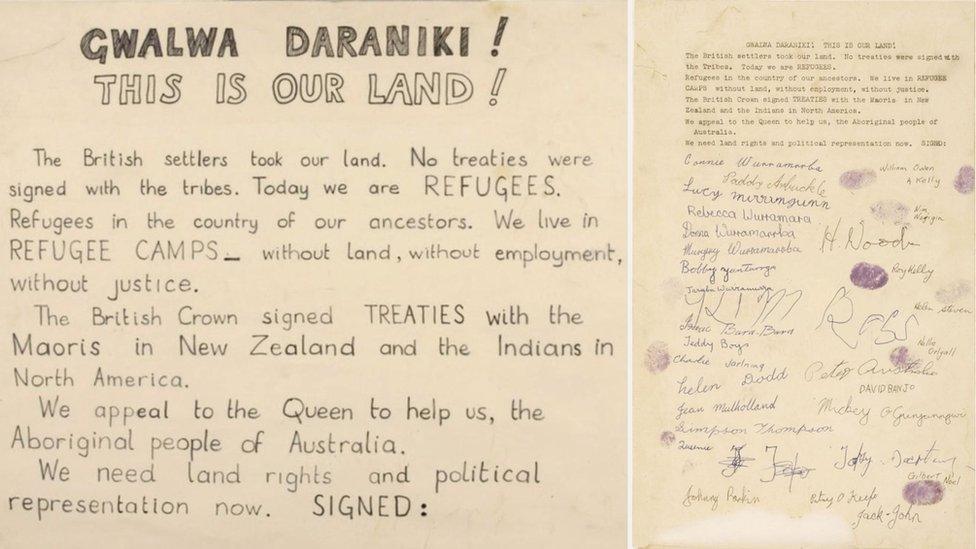 GWALWA DARANIKI!
THIS IS OUR LAND!
The British settlers took our land. No treaties were
signed with the tribes. Today we are REFUGEES.
Refugees in the country of our ancestors. We live in
REFUGEE CAMPS – without land, without employment,
without justice.
The British Crown signed TREATIES with the
Maoris in New Zealand and the Indians in
North America.
We appeal to the Queen to help us, the
Aboriginal people of Australia.
We need land rights and political
representation now. SIGNED:
GWALWA DARANIKI! THIS IS OUR LAND!
The British settlers took our land. No treaties were signed with
the Tribes. Today we are REFUGEES.
Refugees in the country of our ancestors. We live in REFUGEE
CAMPS without land, without employment, without justice.
The British Crown signed TREATIES with the Maoris in New
Zealand and the Indians in North America.
We appeal to the Queen to help us, the Aboriginal people of
Australia.
We need land rights and political representation now. SIGNED:
Connie Wurramarrba
Paddy Arbuckle
Lucy
Rebecca Wurramara
Wurramarrba
Wurramarrba
Bobby
Isaac Bara-Bara
Teddy Boy
Charlie
helen Dodd
Jean Mulholland
Simpson Thompson
Johnny Parkin
William Owen
A Kelly
H. Wood
Roy Kelly
Helen Steven
Nellie
Peter Australia
DAVID BANJO
Mickey
Gilbert Noel
Jack-John